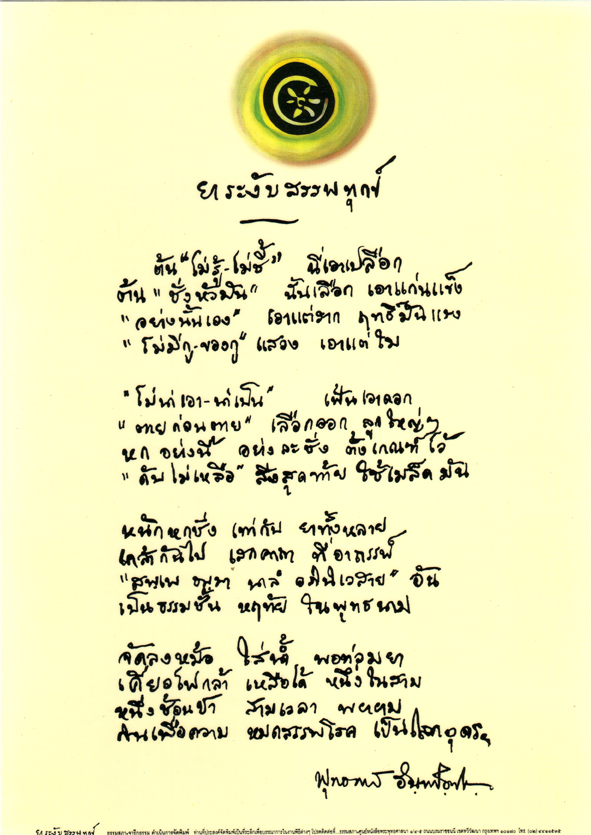 ยาระงับสรรพทุกข์
ต้น "ไม่รู้-ไม่ชี้" นี่เอาเปลือก
ต้น "ชั่งหัวมัน" นั้นเลือก เอาแก่นแข็ง
"อย่างนั้นเอง" เอาแต่ราก ฤทธิ์มันแรง
"ไม่มีกู-ของกู" แสวง เอาแต่ใบ
"ไม่น่าเอา-น่าเป็น" เฟ้นเอาดอก
"ตายก่อนตาย" เลือกออก ลูกใหญ่ๆ
หกอย่างนี้ อย่างละชั่ง ตั้งเกณฑ์ไว้
"ดับไม่เหลือ" สิ่งสุดท้าย ใช้เมล็ดมัน
หนักหกชั่ง เท่ากับ ยาทั้งหลาย
เคล้ากันไป เสกคาถา ที่อาถรรพ์
"สพฺเพ ธมฺมา นาลํ อภินิเวสาย" อัน
เป็นธรรมชั้น หฤทัย ในพุทธนาม
จัดลงหม้อ ใส่น้ำ พอท่วมยา
เคี่ยวไฟกล้า เหลือได้ หนึ่งในสาม
หนึ่งช้อนชา สามเวลา พยายาม
กินเพื่อความ หมดสรรพโรค เป็นโลกอุดรฯ
พุทธทาส อินฺทปญฺโญ
ยาระงับสรรพทุกข์